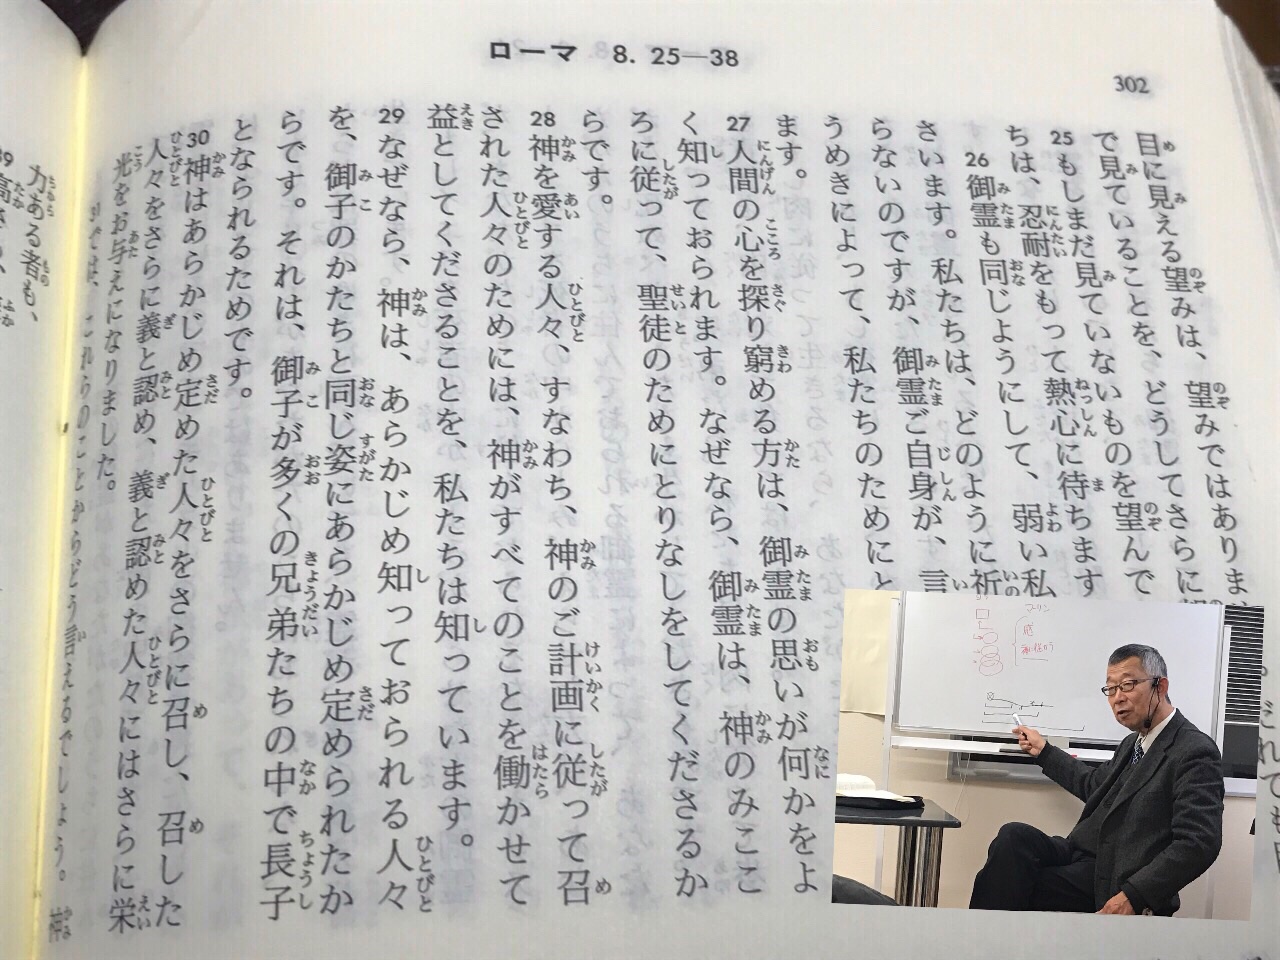 ローマ 8. 25—38
302
目に見える望みは、望みではありま
で見ていることを、どうしてさらに
25 もしまだ見ていないものを望んで
ちは、忍耐をもって熱心に待ちます
26 御霊も同じようにして、弱い私
さいます。私たちは、どのように祈
らないのですが、御霊ご自身が、言
うめきによって、私たちのためにと
ます。
27 人間の心を探り窮める方は、御霊の思いが何かをよ
く知っておられます。なぜなら、御霊は、神のみここ
ろに従って、聖徒のためにとりなしをしてくださるか
らです。
28 神を愛する人々、すなわち、神のご計画に従って召
された人々のためには、神がすべてのことを働かせて
益としてくださることを、私たちは知っています。
29 なぜなら、神は、あらかじめ知っておられる人々
を、御子のかたちと同じ姿にあらかじめ定められたか
らです。それは、御子が多くの兄弟たちの中で長子
となられるためです。
30 神はあらかじめ定めた人々をさらに召し、召した
人々をさらに義と認め、義と認めた人々にはさらに栄
光をお与えになりました。
31 では、これらのことからどう言えるでしょう。神
力ある者も、
39 高さも、